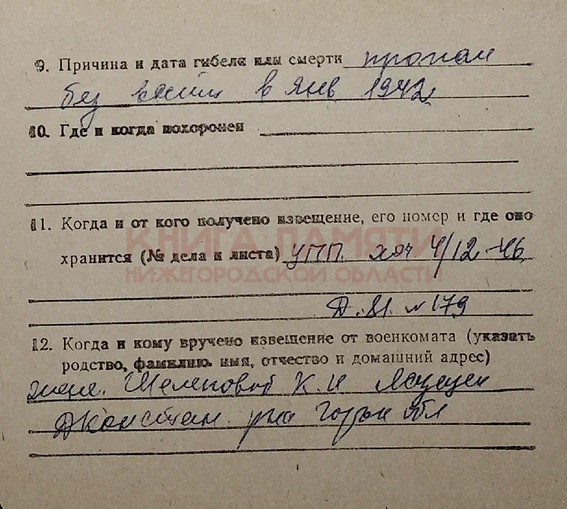 9. Причина и дата гибели или смерти пропал
без вести в янв 1942
10. Где и когда похоронен
11. Когда и от кого получено извещение, его номер и где оно
КНИГА ПАМЯТИ
хранится (№ дела и листа) УПП. 4/12-46
НИЖЕГОРОДСКОЙ ОБЛАСТИ
Д. 81. № 179
12. Когда и кому вручено извещение от военкомата (указать
родство, фамилию имя, отчество и домашний адрес)
жене. К. И
Д Констан. р-на Горьк обл